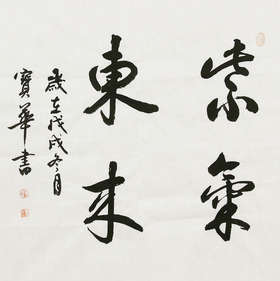 紫氣
東来
歲在戊戌冬月
寶華書